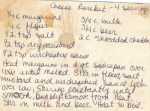 Cheese Rarebit - 4 servings
1/4 c margarine
1/4 c flour
1/2 tsp salt
1/2 tsp dry mustard
1/2 tsp worchestire sauce
3/4 c milk
3/4 c beer
2 c shredded cheddar
Heat margarine in large saucepan over
low until melted. Stir in flour, salt
mustard and worcestershire sauce. Cook
over low, stirring constantly until
smooth, bubbly. Remove from
Stir in milk and beer. Heat to boil